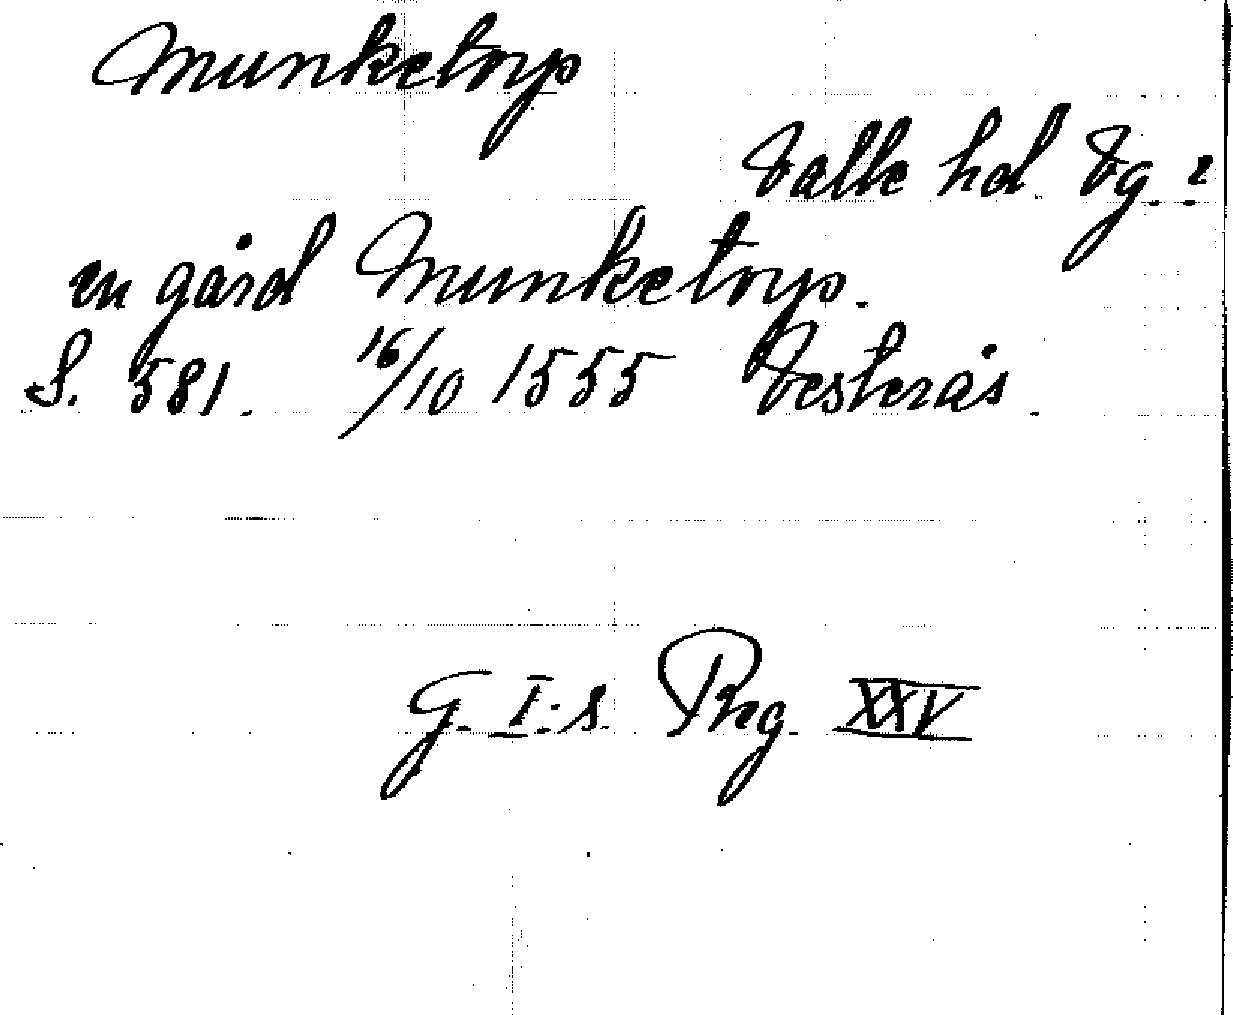 Munketorp
Valle hd. Vg. ?
en gård Munketorp.
S. 581. 16/10 1555 Vesterås.
G. I:s Reg. XXV